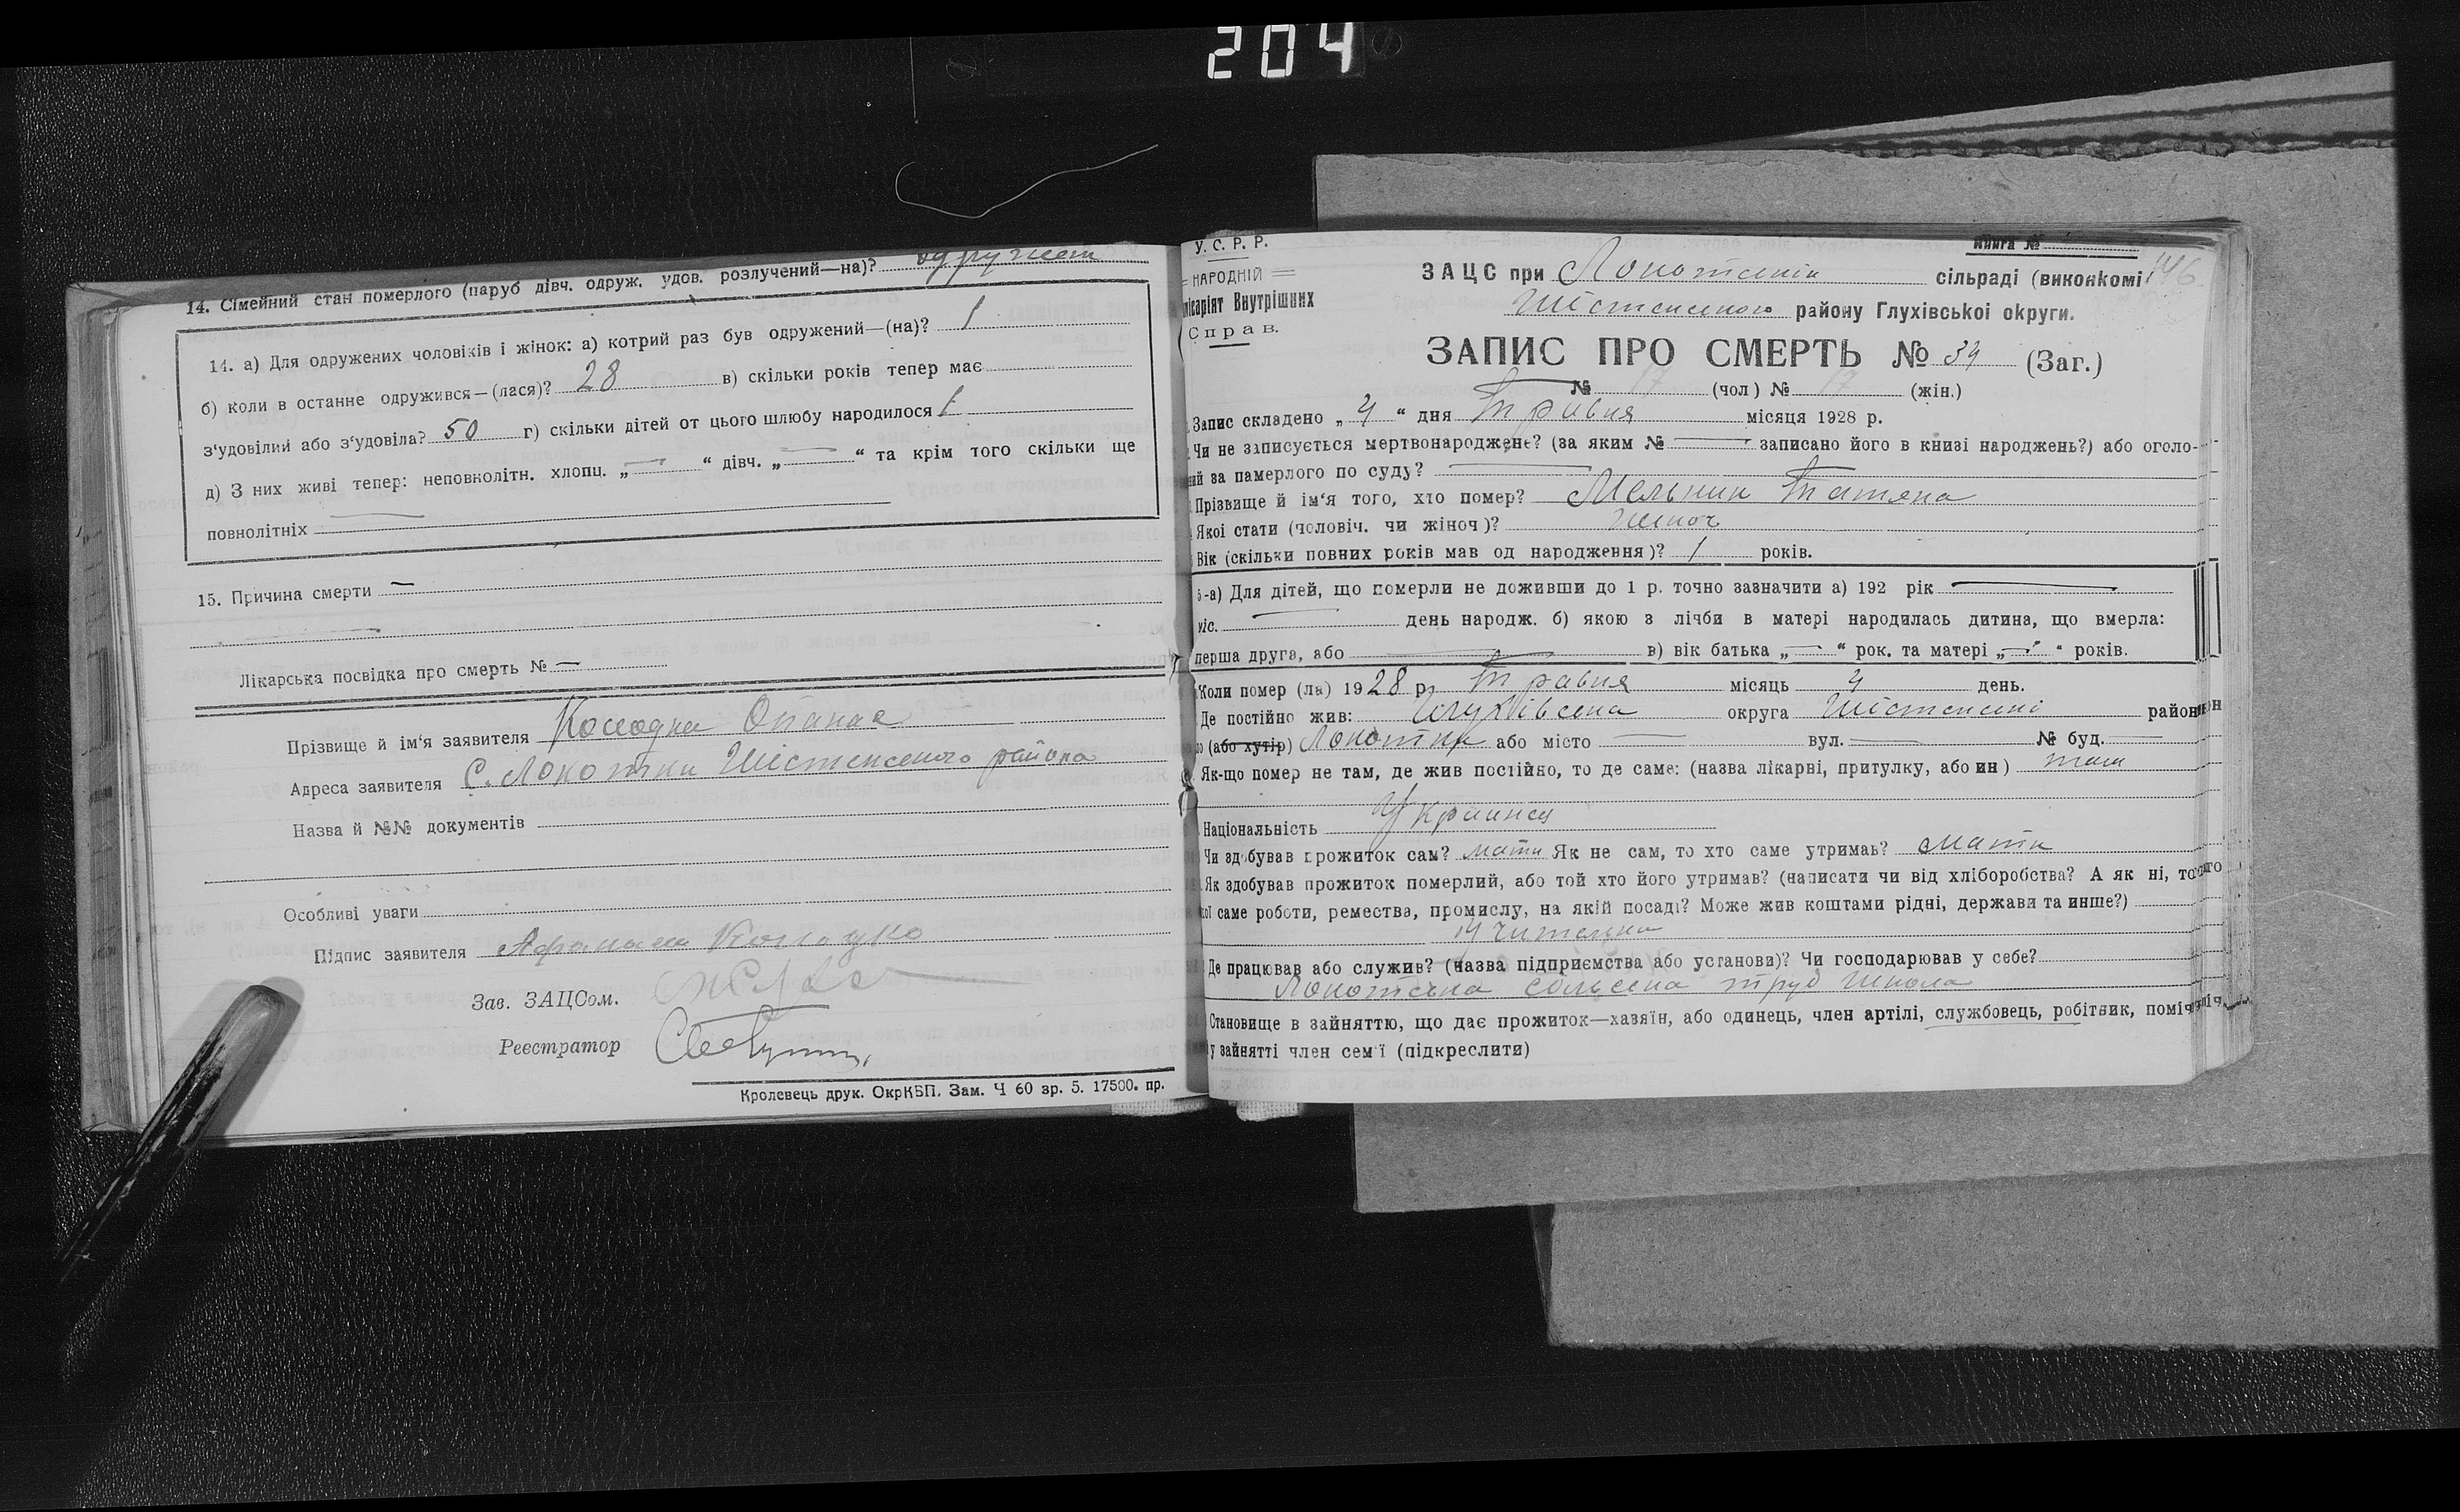 204
14. Сімейний стан померлого (паруб дівч. одруж. удов. розлучений—на)? одружен
14. а) Для одружених чоловіків і жінок: а) котрий раз був одружений—(на)? 1
б) коли в останне одружився—(лася)? 28 в) скільки років тепер має
з'удовілий або з'удовіла? 50 г) скільки дітей от цього шлюбу народилося 1
д) З них живі тепер: неповнолітн. хлопц. „ — “ дівч. „ — “ та крім того скільки ще
повнолітніх —
15. Причина смерти —
Лікарська посвідка про смерть № —
Прізвище й ім'я заявителя Опанас
Адреса заявителя С. Локотки Шістенського района
Назва й №№ документів
Особливі уваги
Підпис заявителя Афанасии
Зав. ЗАЦСом.
Реєстратор
Кролевець друк. ОкрКВП. Зам. Ч 60 зр. 5. 17500. пр.
У. С. Р. Р.
НАРОДНІЙ
місаріят Внутрішних
Справ.
Книга №
146
ЗАЦС при сільраді (виконкомі
району Глухівської округи.
ЗАПИС ПРО СМЕРТЬ № 34 (Заг.)
№ 17 (чол) № 17 (жін.)
Запис складено „ 4 “ дня Травня місяця 1928 р.
Чи не записується мертвонароджене? (за яким № — записано його в книзі народжень?) або оголо-
ний за памерлого по суду? —
Прізвище й ім'я того, хто помер? Мельник Татяна
Якої стати (чоловіч. чи жіноч)? жіноч
Вік (скільки повних років мав од народження)? 1 років.
5-а) Для дітей, що померли не доживши до 1 р. точно зазначити а) 192 рік —
міс. — день народж. б) якою з лічби в матері народилась дитина, що вмерла:
перша друга, або — в) вік батька „ — “ рок. та матері „ — “ років.
Коли помер (ла) 1928 р. Травня місяць 4 день.
Де постійно жив: Глухівсена округа Шістенсені район
(або хутір) Локотки або місто — вул. — № буд. —
Як-що помер не там, де жив постійно, то де саме: (назва лікарні, притулку, або ин) там
Національність Украинка
Чи здобував прожиток сам? мати Як не сам, то хто саме утримав? мати
Як здобував прожиток померлий, або той хто його утримав? (написати чи від хліборобства? А як ні, то
саме роботи, ремества, промислу, на якій посаді? Може жив коштами рідні, держави та инше?)
Учителка
Де працював або служив? (назва підприємства або установи)? Чи господарював у себе?
Локотська сельсска труд школа
Становище в зайняттю, що дає прожиток—хазяїн, або одинець, член артілі, службовець, робітвик, поміч
у зайнятті член сем'ї (підкреслити)